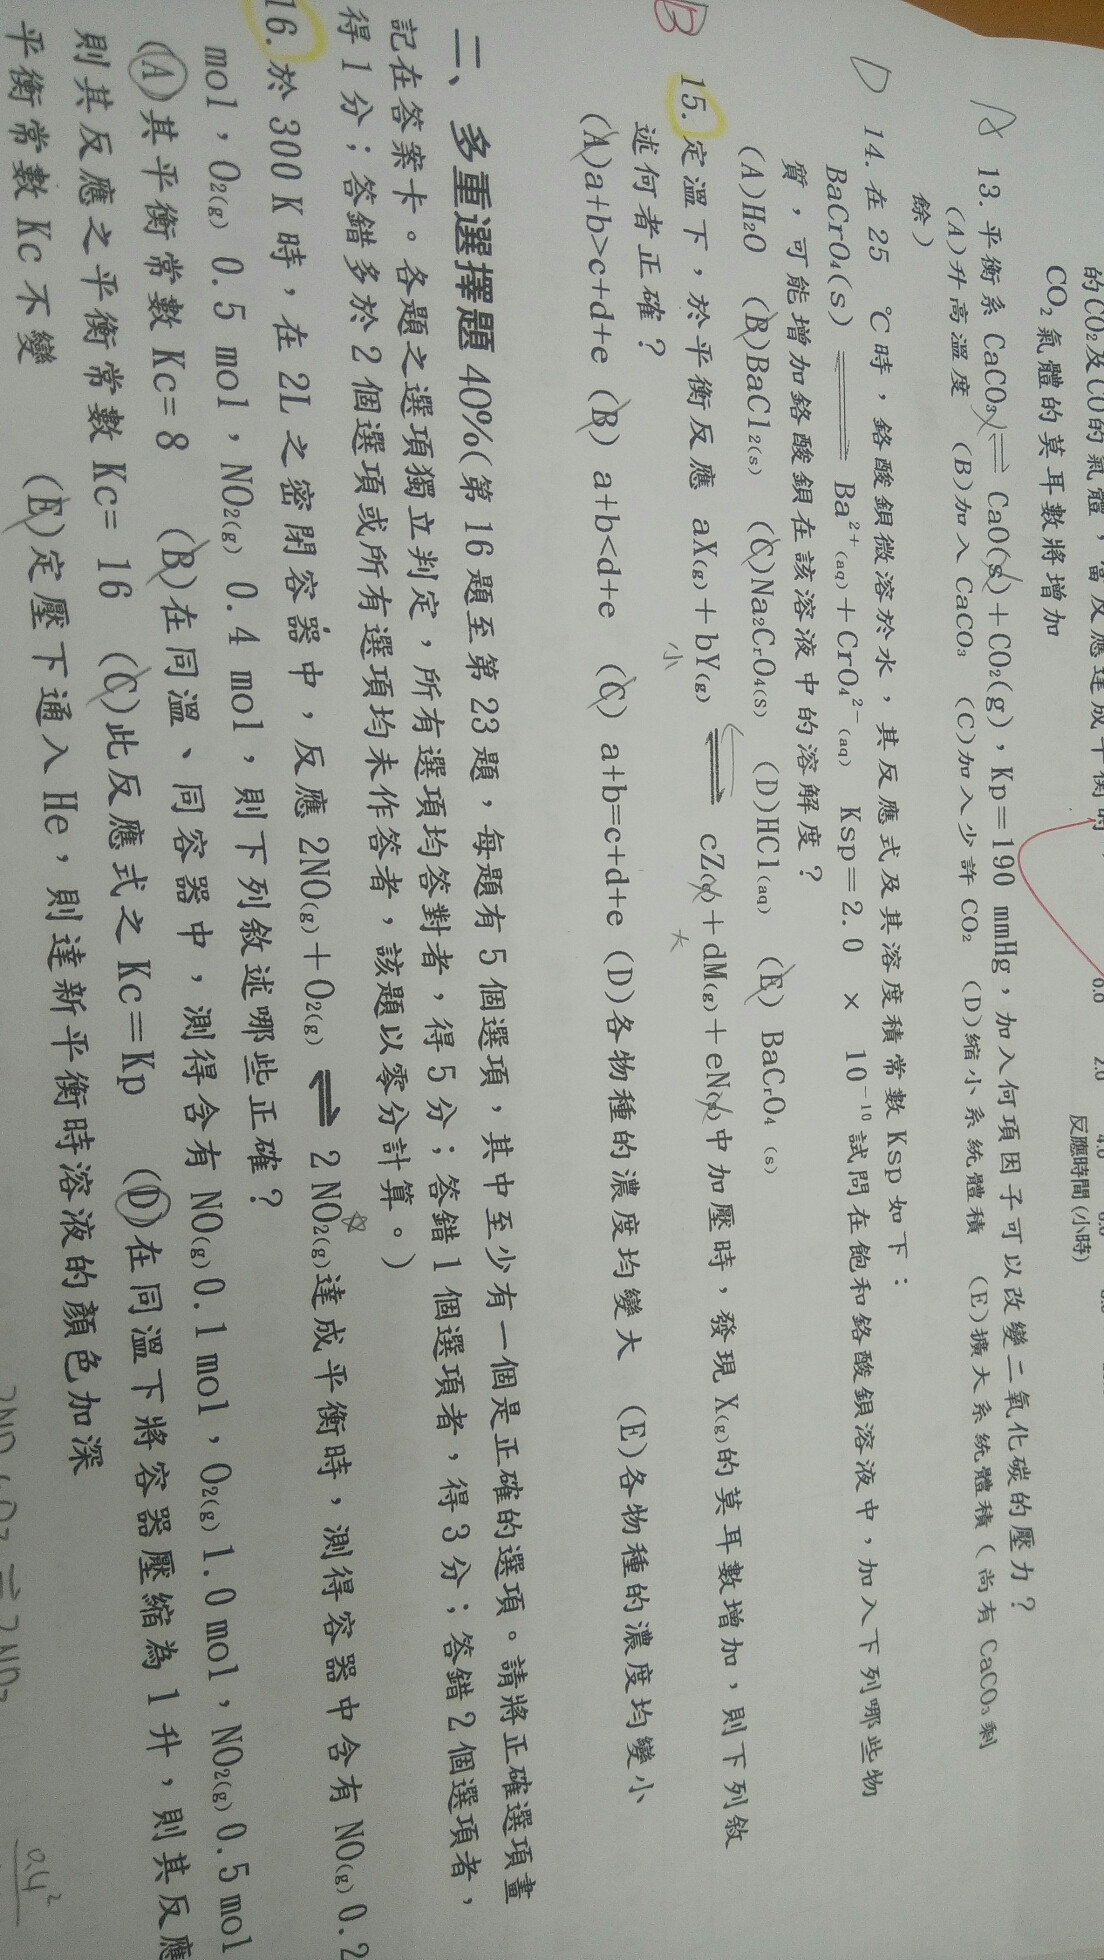 的CO₂及CO的氣體，當反應達成平衡時，
CO₂氣體的莫耳數將增加
0.0 2.0 4.0 6.0 8.0
反應時間(小時)
A 13. 平衡系 CaCO₃(s) ⇌ CaO(s)＋CO₂(g)，Kp＝190 mmHg，加入何項因子可以改變二氧化碳的壓力？
(A)升高溫度 (B)加入 CaCO₃ (C)加入少許 CO₂ (D)縮小系統體積 (E)擴大系統體積（尚有 CaCO₃剩
餘）
D 14. 在 25 ℃時，鉻酸鋇微溶於水，其反應式及其溶度積常數 Ksp 如下：
BaCrO₄(s) ⇌ Ba²⁺(aq)＋CrO₄²⁻(aq) Ksp＝2.0 × 10⁻¹⁰試問在飽和鉻酸鋇溶液中，加入下列哪些物
質，可能增加鉻酸鋇在該溶液中的溶解度？
(A)H₂O (B)BaCl₂(s) (C)Na₂CrO₄(s) (D)HCl(aq) (E) BaCrO₄ (s)
B 15. 定溫下，於平衡反應 aX(g)＋bY(g) ⇌ cZ(s)＋dM(g)＋eN(g)中加壓時，發現 X(g)的莫耳數增加，則下列敘
小 大
述何者正確？
(A)a+b>c+d+e (B) a+b<d+e (C) a+b=c+d+e (D)各物種的濃度均變大 (E)各物種的濃度均變小
二、多重選擇題 40%(第 16 題至第 23 題，每題有 5 個選項，其中至少有一個是正確的選項。請將正確選項畫
記在答案卡。各題之選項獨立判定，所有選項均答對者，得 5 分；答錯 1 個選項者，得 3 分；答錯 2 個選項者，
得 1 分；答錯多於 2 個選項或所有選項均未作答者，該題以零分計算。)
16. 於 300 K 時，在 2L 之密閉容器中，反應 2NO(g)＋O₂(g) ⇌ 2 NO₂(g)達成平衡時，測得容器中含有 NO(g) 0.2
mol，O₂(g) 0.5 mol，NO₂(g) 0.4 mol，則下列敘述哪些正確？
(A)其平衡常數 Kc= 8 (B)在同溫、同容器中，測得含有 NO(g)0.1 mol，O₂(g)1.0 mol，NO₂(g)0.5 mol
則其反應之平衡常數 Kc= 16 (C)此反應式之 Kc＝Kp (D)在同溫下將容器壓縮為 1 升，則其反應
平衡常數 Kc 不變 (E)定壓下通入 He，則達新平衡時溶液的顏色加深
2NO+O₂⇌2NO₂
0.4²